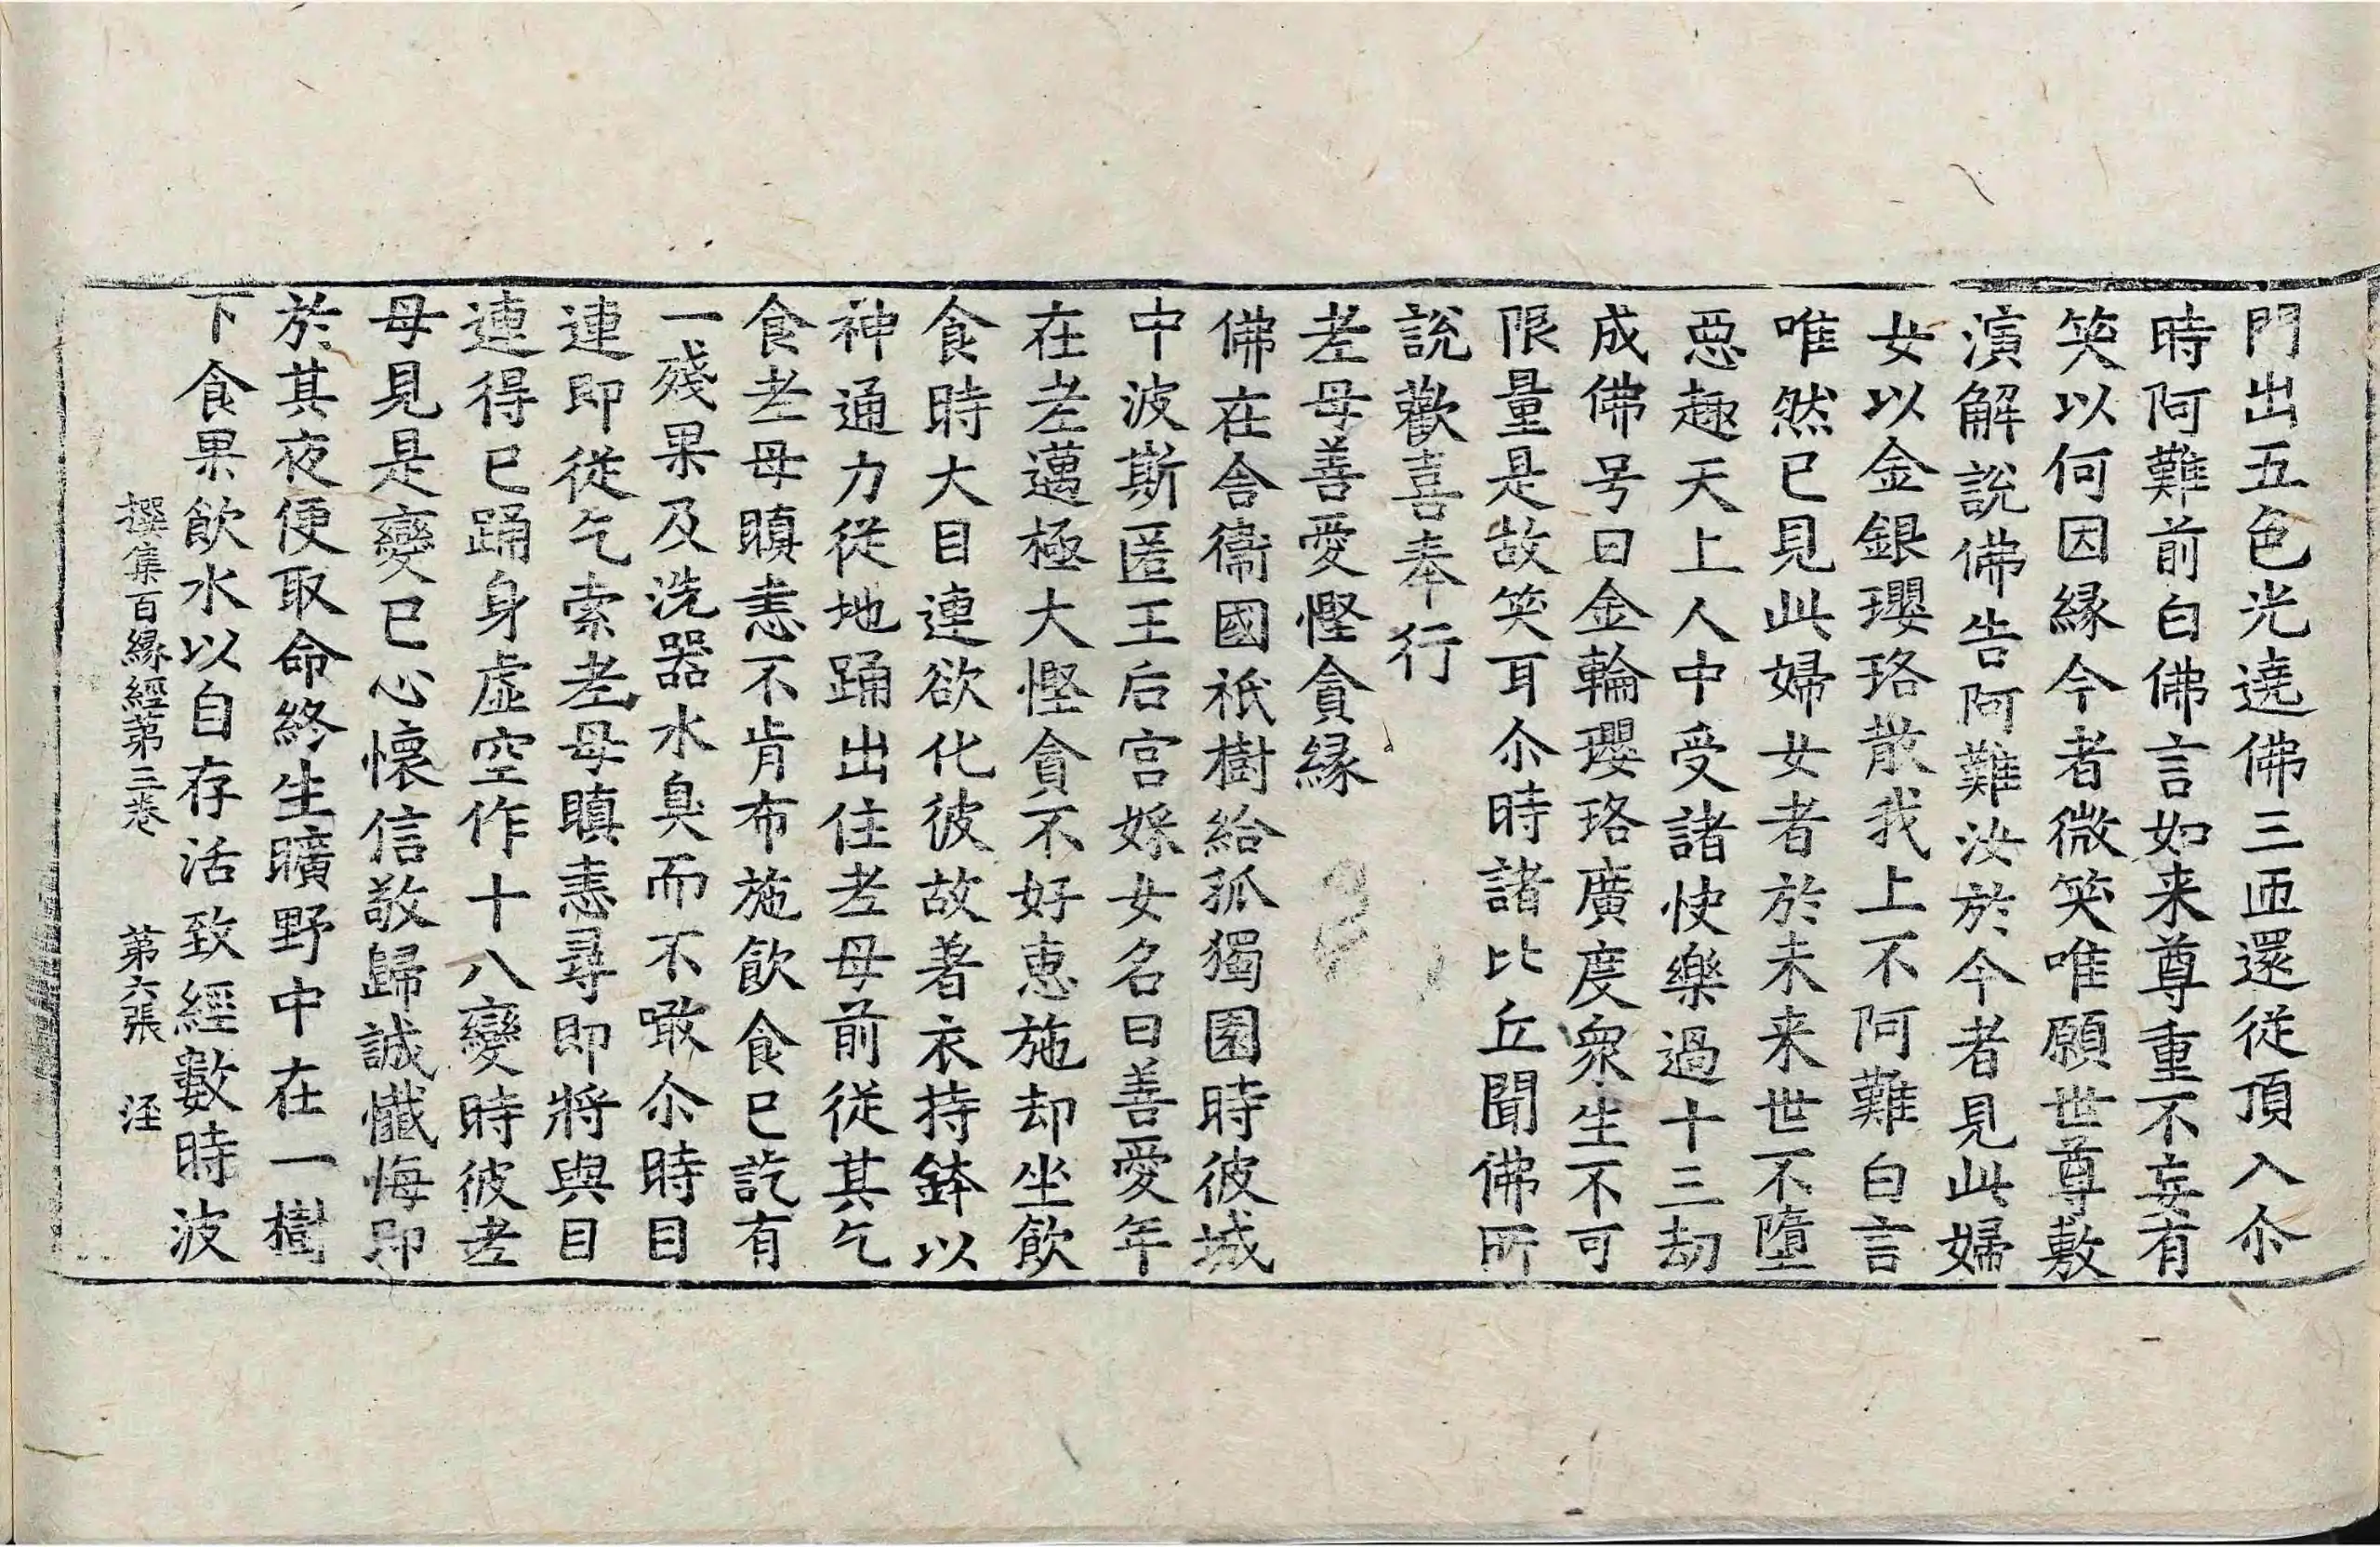 門出五色光遶佛三匝還從頂入尒
時阿難前白佛言如来尊重不妄有
笑以何因縁今者微笑唯願世尊敷
演解說佛告阿難汝於今者見此婦
女以金銀瓔珞散我上不阿難白言
唯然已見此婦女者於未来世不墮
惡趣天上人中受諸快樂過十三劫
成佛号曰金輪瓔珞廣度衆生不可
限量是故笑耳尒時諸比丘聞佛所
說歡喜奉行
老母善愛慳貪縁
佛在舍衞國祇樹給孤獨園時彼城
中波斯匿王后宫婇女名曰善愛年
在老邁極大慳貪不好恵施却坐飲
食時大目連欲化彼故著衣持鉢以
神通力從地踊出住老母前從其乞
食老母瞋恚不肯布施飲食已訖有
一殘果及洗器水臭而不噉尒時目
連即從乞索老母瞋恚尋即將與目
連得已踊身虛空作十八變時彼老
母見是變已心懷信敬歸誠懺悔即
於其夜便取命終生曠野中在一樹
下食果飲水以自存活致經數時波
撰集百縁經第三卷 第六張 淫